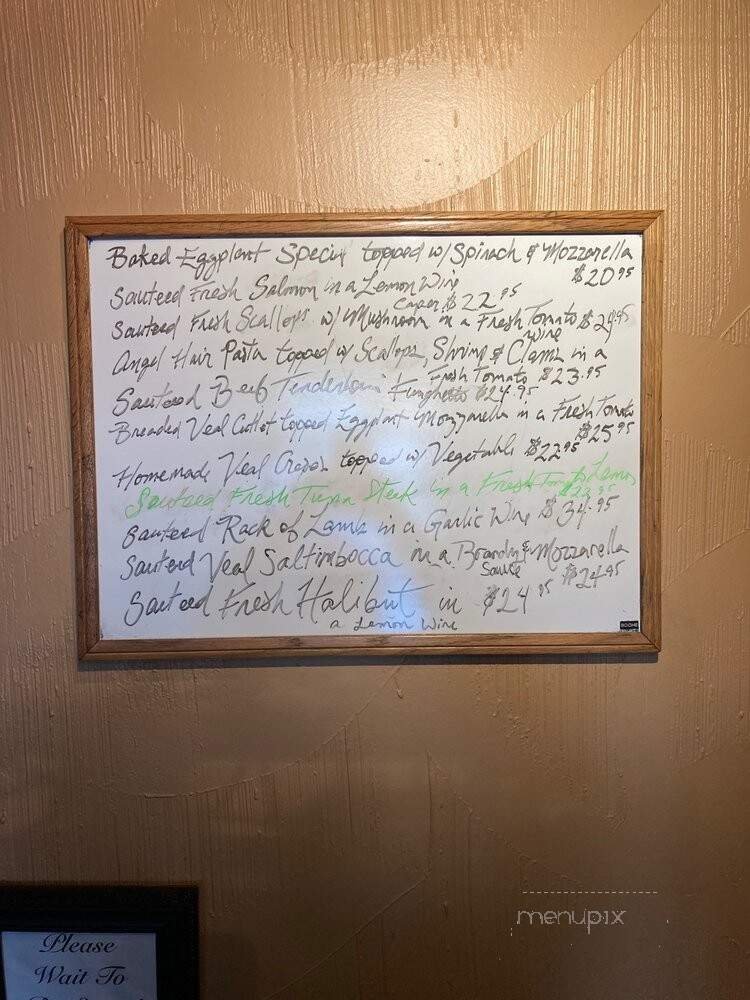 Baked Eggplant Special topped w/ Spinach & Mozzarella
$20.95
Sauteed Fresh Salmon in a Lemon Wine
caper $22.95
Sauteed Fresh Scallops w/ Mushroom in a Fresh Tomato $24.95
wine
Angel Hair Pasta topped w/ Scallops, Shrimp & Clams in a
Fresh Tomato $23.95
Sauteed Beef Tenderloin Funghetto $24.95
Breaded Veal Cutlet topped Eggplant Mozzarella in a Fresh Tomato
$25.95
Homemade Veal topped w/ Vegetable $22.95
Sauteed Fresh Tuna Steak in a Fresh Tomato Lemon
Sauteed Rack of Lamb in a Garlic Wine $34.95
Sauteed Veal Saltimbocca in a Brandy & Mozzarella
Sauce $24.95
Sauteed Fresh Halibut in $24.95
a Lemon Wine
Please
Wait To
menupix